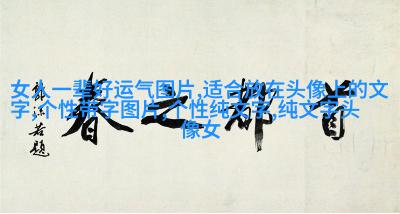 女人一辈好运气图片,适合放在头像上的文
字,个性带字图片,个性纯文字,纯文字头
像女
首都之春
郭沫若题